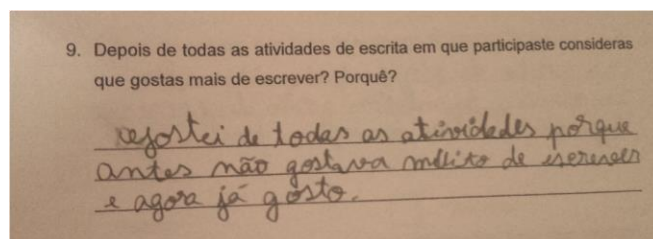 9. Depois de todas as atividades de escrita em que participaste consideras
que gostas mais de escrever? Porquê?
gostei de todas as atividades porque
antes não gostava muito de escrever
e agora já gosto.